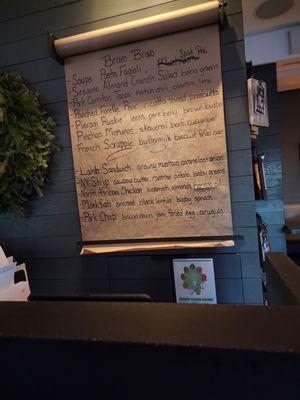 Bravo Bravo
- Soups Pasta Fagoli, Split Pea
- Sesame Almond Crunch Salad baby greens
- Pork Carnitas Tacos hatch chili, cilantro, lime
- Poached Forelle Pear ricotta, toast, prosciutto
- Pierogi Ruskie leeks, pork belly, brown butter
- Pinchos Morunos skewered beef, cucumber
- French Scrapple buttermilk biscuit fried egg
- Lamb Sandwich grainy mustard, caramel onion
- NY Strip cowboy butter, roasted potato, baby greens
- North African Chicken basmati, almonds,
- Monkfish braised black lentils, baby spinach
- Pork Chop bacon jam, fried egg, arugula